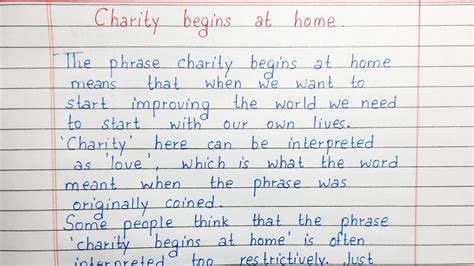 Charity begins at home.
The phrase charity begins at home
means that when we want to
start improving the world we need
to start with our own lives.
'Charity' here can be interpreted
as 'love', which is what the word
meant when the phrase was
originally coined.
Some people think that the phrase
'charity begins at home' is often
interpreted too restrictively. Just